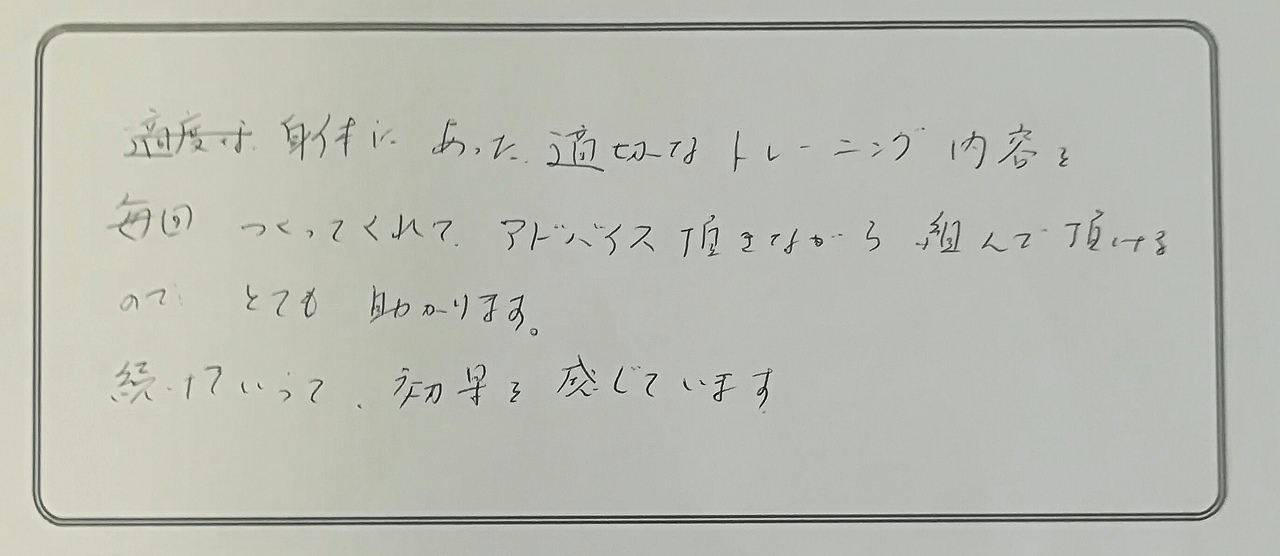 身体に あった 適切な トレーニング 内容を
毎回 つくってくれて、アドバイス 頂きながら 組んで 頂ける
ので とても 助かります。
続けていって、効果を 感じています